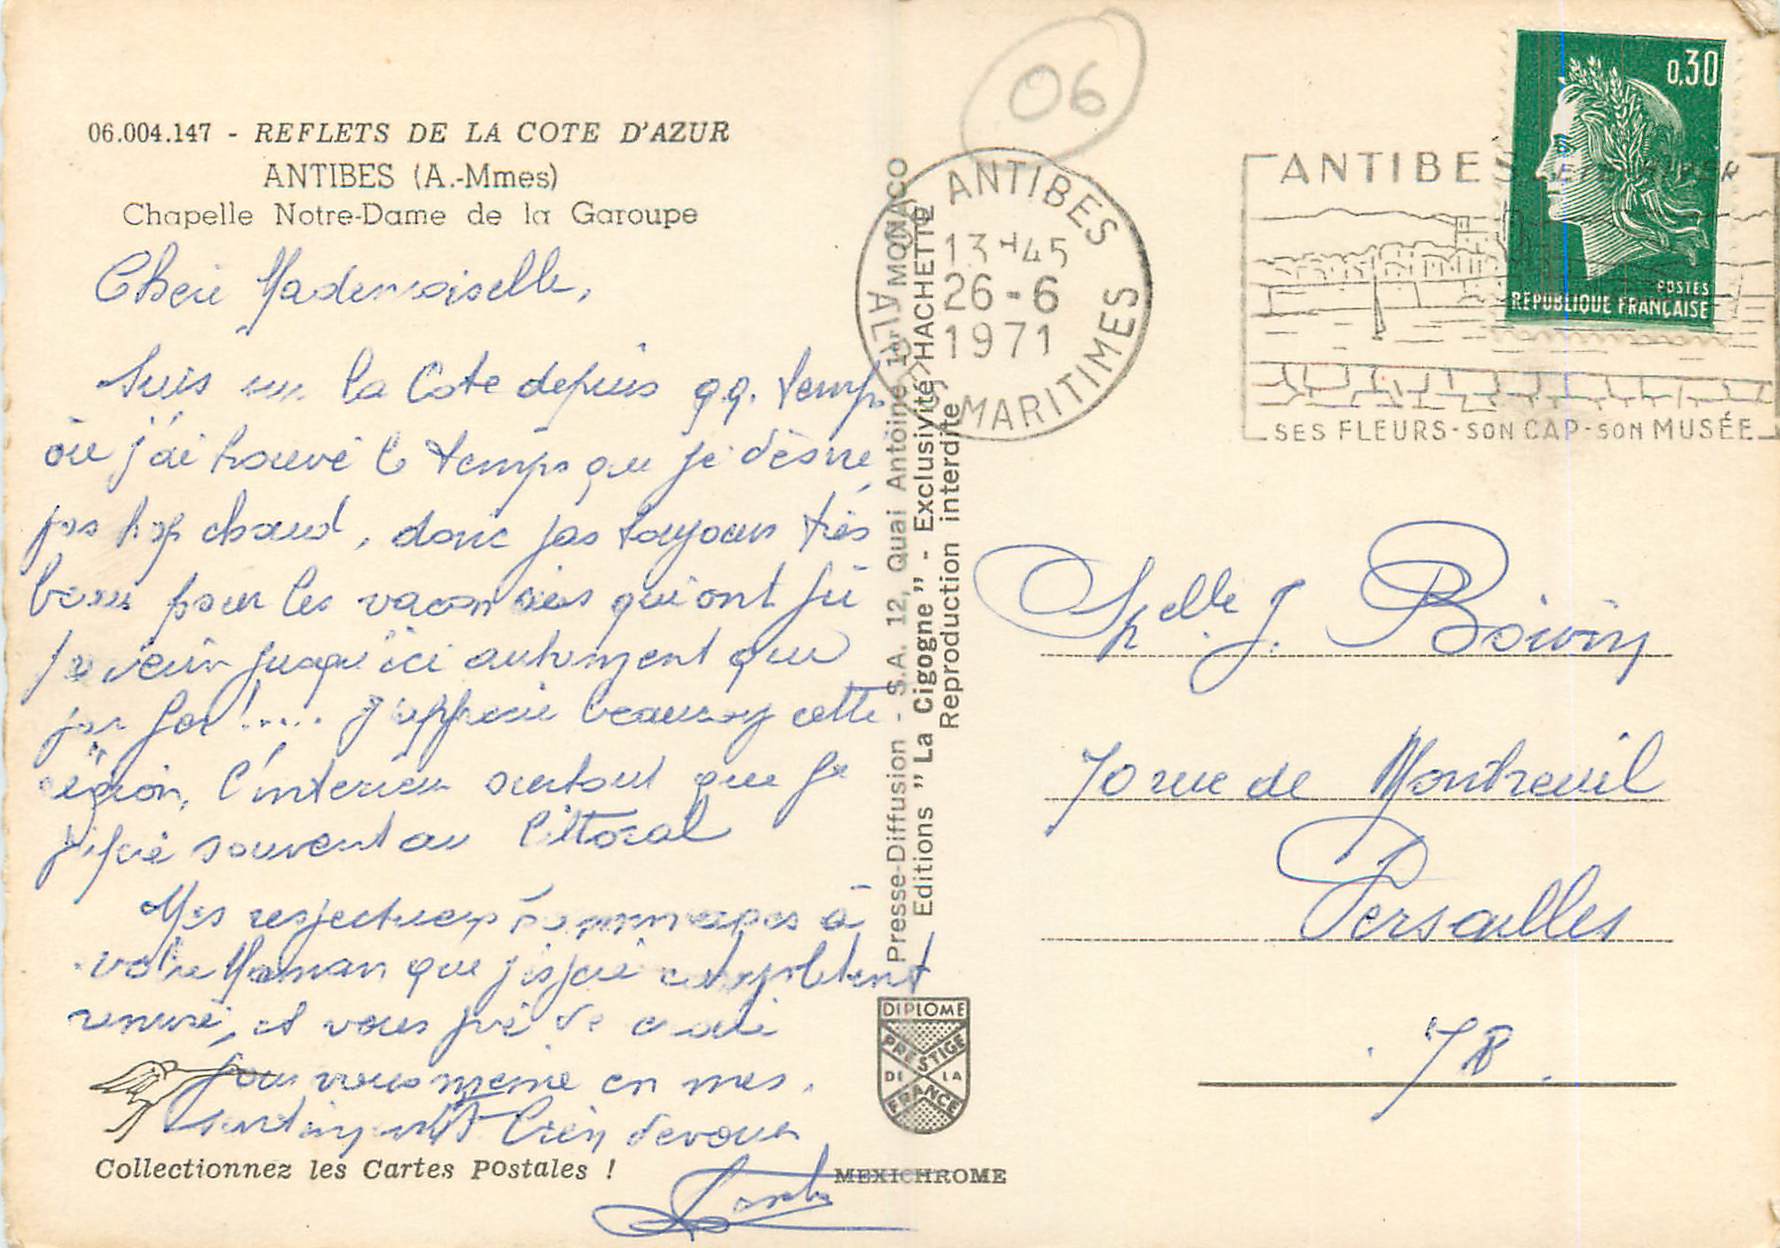 06.004.147 - REFLETS DE LA COTE D'AZUR
ANTIBES (A.-Mmes)
Chapelle Notre-Dame de la Garoupe
Chère Mademoiselle,
Suis sur la Cote depuis qq. temps
où j'ai trouvé le temps que je désire
pas trop chaud, donc pas toujours très
beau pour les vacanciers qui ont fui
jusqu'ici autrement que
par fer !.... J'apprécie beaucoup cette
région, l'interieur surtout que je
préfère souvent au littoral
Mes respectueux hommages à
votre Maman que j'espère complètement
remise, et vous prie de croire
pour vous même en mes
sentiments bien dévoués
Collectionnez les Cartes Postales !
Presse-Diffusion - S.A. 12, Quai Antoine 1er MONACO
Editions "La Cigogne" - Exclusivité HACHETTE
Reproduction interdite
DIPLOME
PRESTIGE
DE LA
FRANCE
MEXICHROME
06
ANTIBES
13H45
26-6
1971
ALPES MARITIMES
ANTIBES
SES FLEURS-SON CAP-SON MUSÉE
0,30
POSTES
REPUBLIQUE FRANÇAISE
Melle J. Boivin
70 rue de Montreuil
Versailles
78